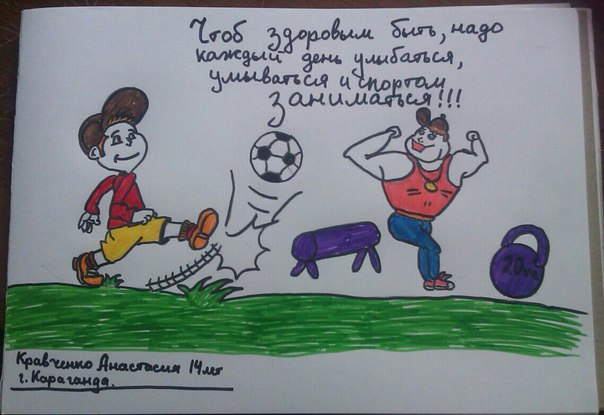 Чтоб здоровым быть, надо
каждый день улыбаться,
умываться и спортом
заниматься!!!
20кг
Кравченко Анастасия 14лет
г. Караганда.